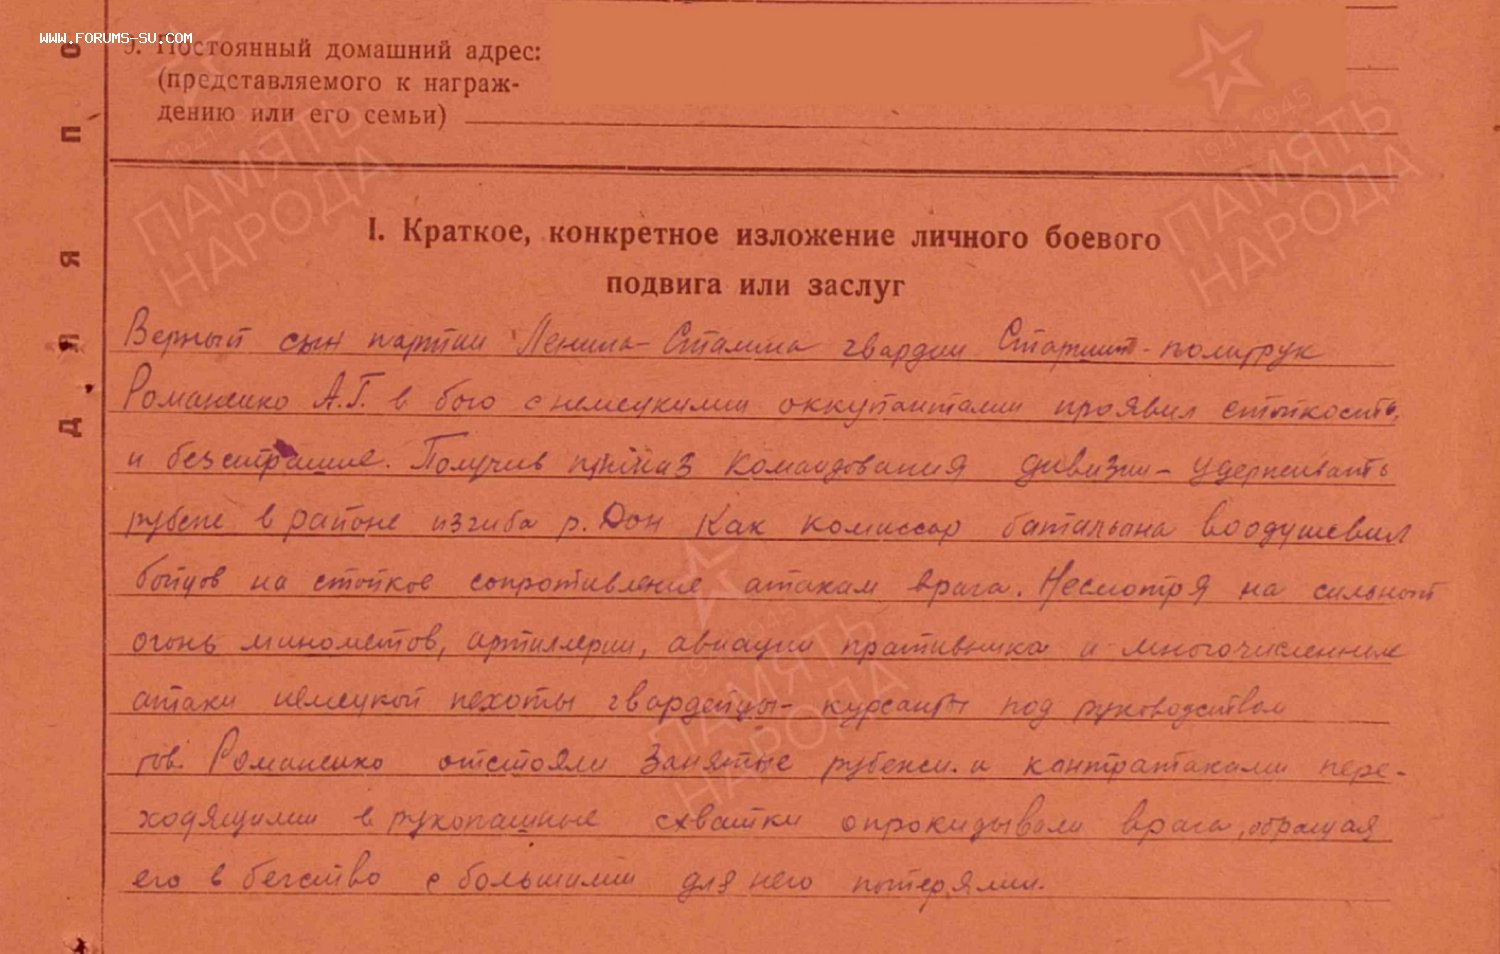 WWW.FORUMS-SU.COM
9. Постоянный домашний адрес:
(представляемого к награж-
дению или его семьи)
ДЛЯ ПО
1941 1945
ПАМЯТЬ
НАРОДА
1941 1945
ПАМЯТЬ
НАРОДА
I. Краткое, конкретное изложение личного боевого
подвига или заслуг
Верный сын партии Ленина-Сталина гвардии Старший-политрук
Романенко А.Г. в бою с немецкими оккупантами проявил стойкость,
и безстрашие. Получив приказ командования дивизии - удерживать
рубеж в районе изгиба р. Дон как комиссар баталиона воодушевил
бойцов на стойкое сопротивление атакам врага. Несмотря на сильный
огонь минометов, артиллерии, авиации противника и многочисленные
атаки немецкой пехоты гвардейцы-курсанты под руководством
тов. Романенко отстояли занятые рубежи и контратаками пере-
ходящими в рукопашные схватки опрокидывали врага, обращая
его в бегство с большими для него потерями.
1941 1945
ПАМЯТЬ
НАРОДА